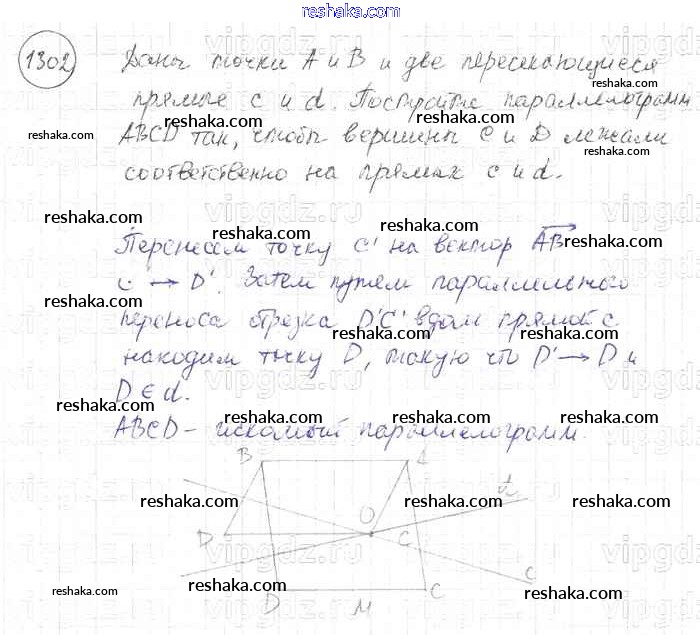 reshaka.com
1302 Даны точки A и B и две пересекающиеся
reshaka.com
прямые c и d. Постройте параллелограмм
reshaka.com
reshaka.com
ABCD так, чтобы вершины C и D лежали
reshaka.com
соответственно на прямых c и d.
reshaka.com
reshaka.com
reshaka.com
Перенесем точку C' на вектор AB
C → D'. Затем путем параллельного
reshaka.com
reshaka.com
reshaka.com
переноса отрезка D'C' вдоль прямой c
reshaka.com
reshaka.com
находим точку D, такую что D' → D и
D ∈ d.
reshaka.com
reshaka.com
reshaka.com
ABCD - искомый параллелограмм.
B
reshaka.com
reshaka.com
reshaka.com
D O C
C
D M C
reshaka.com
reshaka.com
reshaka.com
vipgdz.ru